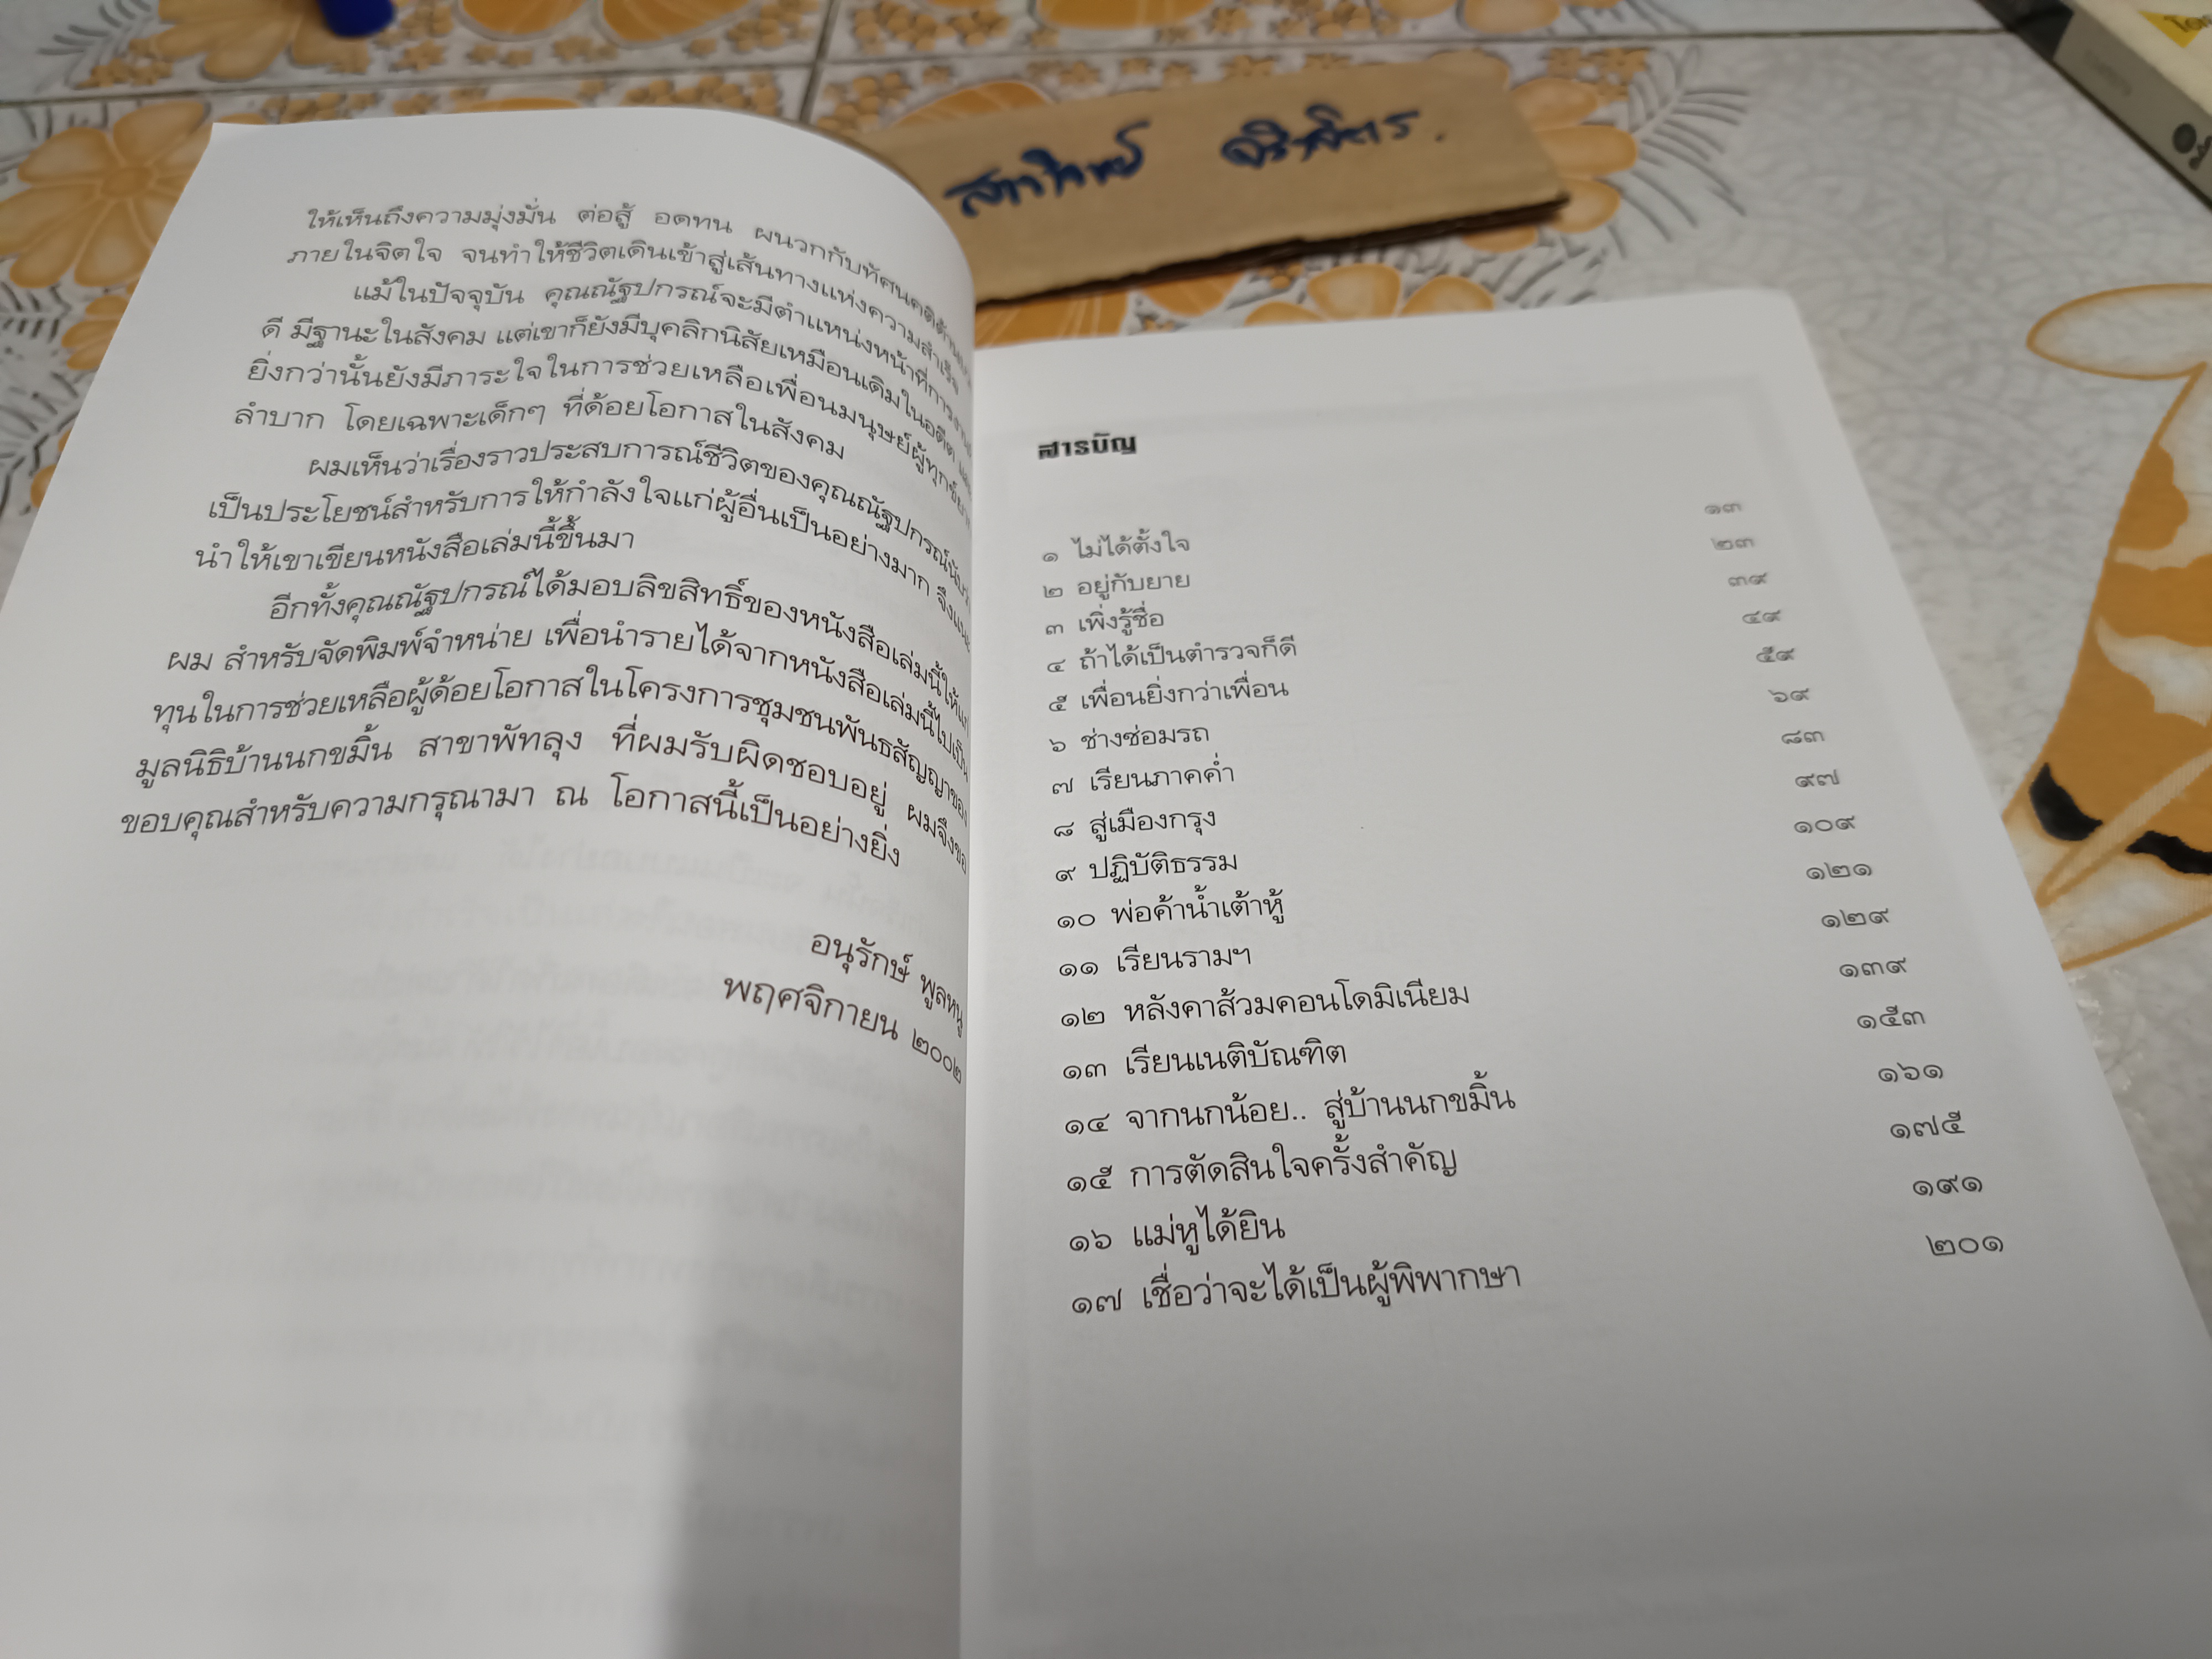 ให้เห็นถึงความมุ่งมั่น ต่อสู้ อดทน ผนวกกับทัศนคติด้าน
ภายในจิตใจ จนทำให้ชีวิตเดินเข้าสู่เส้นทางแห่งความสำเร็จ
แม้ในปัจจุบัน คุณณัฐปกรณ์จะมีตำแหน่งหน้าที่การงาน
ดี มีฐานะในสังคม แต่เขาก็ยังมีบุคลิกนิสัยเหมือนเดิมในอดีต และ
ยิ่งกว่านั้นยังมีภาระใจในการช่วยเหลือเพื่อนมนุษย์ผู้ทุกข์ยาก
ลำบาก โดยเฉพาะเด็กๆ ที่ด้อยโอกาสในสังคม
ผมเห็นว่าเรื่องราวประสบการณ์ชีวิตของคุณณัฐปกรณ์นับว่า
เป็นประโยชน์สำหรับการให้กำลังใจแก่ผู้อื่นเป็นอย่างมาก จึงแนะ
นำให้เขาเขียนหนังสือเล่มนี้ขึ้นมา
อีกทั้งคุณณัฐปกรณ์ได้มอบลิขสิทธิ์ของหนังสือเล่มนี้ให้แก่
ผม สำหรับจัดพิมพ์จำหน่าย เพื่อนำรายได้จากหนังสือเล่มนี้ไปเป็น
ทุนในการช่วยเหลือผู้ด้อยโอกาสในโครงการชุมชนพันธสัญญาของ
มูลนิธิบ้านนกขมิ้น สาขาพัทลุง ที่ผมรับผิดชอบอยู่ ผมจึงขอ
ขอบคุณสำหรับความกรุณามา ณ โอกาสนี้เป็นอย่างยิ่ง
อนุรักษ์ พูลหนู
พฤศจิกายน ๒๐๐๒
สารบัญ
๑ ไม่ได้ตั้งใจ ๑๓
๒ อยู่กับยาย ๒๓
๓ เพิ่งรู้ชื่อ ๓๙
๔ ถ้าได้เป็นตำรวจก็ดี ๔๙
๕ เพื่อนยิ่งกว่าเพื่อน ๕๙
๖ ช่างซ่อมรถ ๖๙
๗ เรียนภาคค่ำ ๘๓
๘ สู่เมืองกรุง ๙๗
๙ ปฏิบัติธรรม ๑๐๙
๑๐ พ่อค้าน้ำเต้าหู้ ๑๒๑
๑๑ เรียนรามฯ ๑๒๙
๑๒ หลังคาส้วมคอนโดมิเนียม ๑๓๙
๑๓ เรียนเนติบัณฑิต ๑๕๓
๑๔ จากนกน้อย.. สู่บ้านนกขมิ้น ๑๖๑
๑๕ การตัดสินใจครั้งสำคัญ ๑๗๕
๑๖ แม่หูได้ยิน ๑๙๑
๑๗ เชื่อว่าจะได้เป็นผู้พิพากษา ๒๐๑